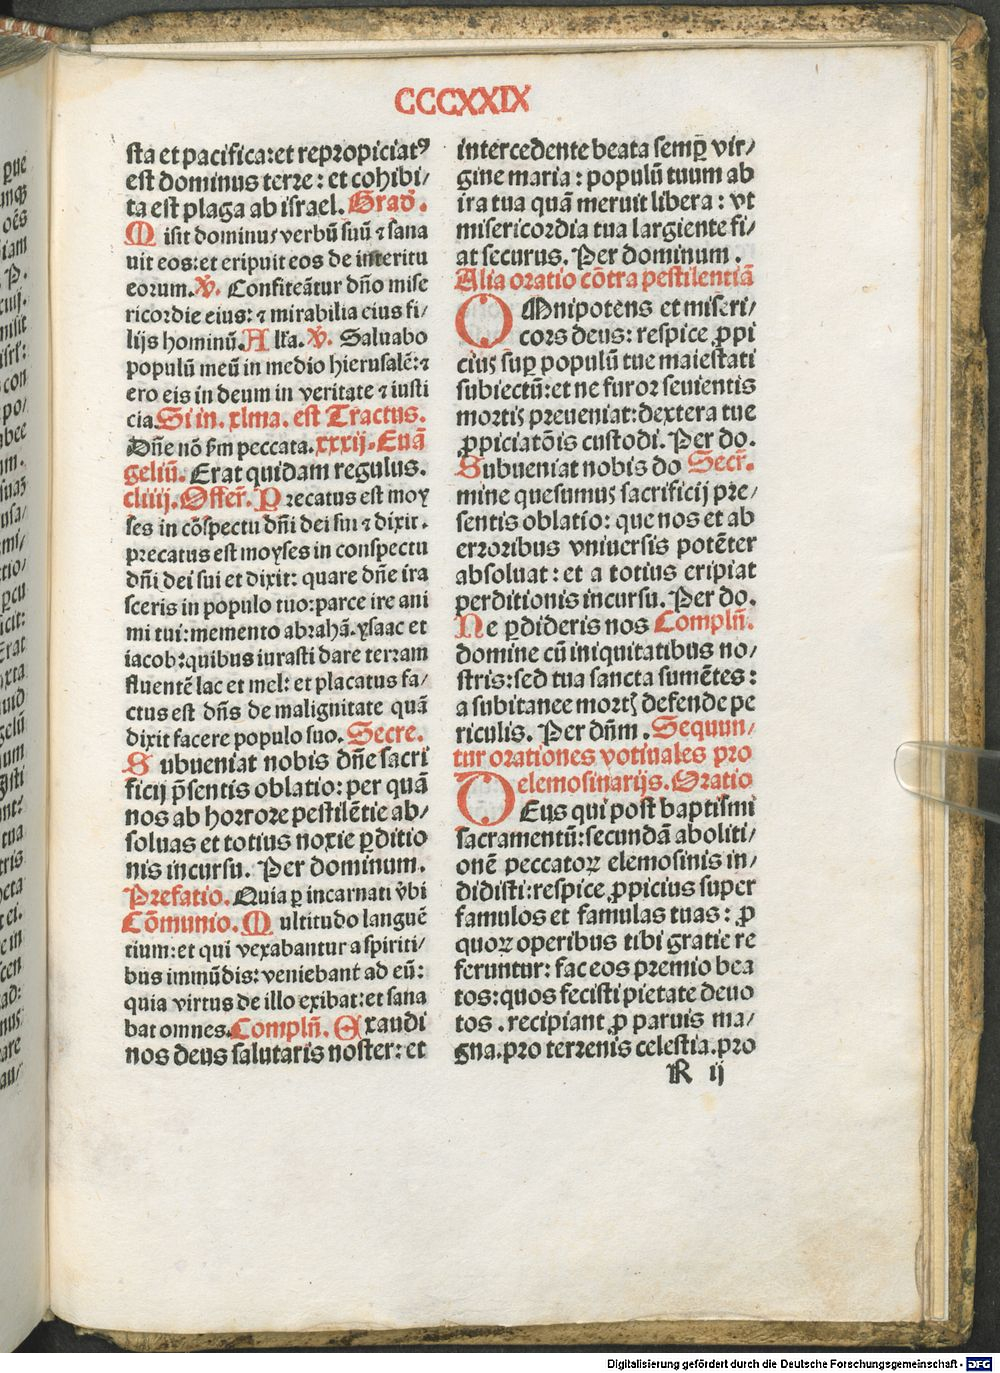 CCCXXIX
sta et pacifica:et repropiciatꝰ
est dominus terre : et cohibi/
ta est plaga ab israel. Grad̓.
Misit dominus verbū suū ⁊ sana
uit eos:et eripuit eos de interitu
eorum. V̓. Confiteātur dn̄o mise
ricordie eius: ⁊ mirabilia eius fi/
lijs hominū. All̓a. V̓. Saluabo
populū meū in medio hierusalē:⁊
ero eis in deum in veritate ⁊ iusti
cia. Si in. xlma. est Tractus.
Dn̄e nō s̄m peccata. xxxij. Euā
geliū. Erat quidam regulus.
cliiij. Offer̄. Precatus est moy
ses in cōspectu dn̄i dei sui ⁊ dixit.
precatus est moyses in conspectu
dn̄i dei sui et dixit: quare dn̄e ira
sceris in populo tuo:parce ire ani
mi tui:memento abrahā.ysaac et
iacob:quibus iurasti dare terram
fluentē lac et mel: et placatus fa/
ctus est dn̄s de malignitate quā
dixit facere populo suo. Secre.
Subueniat nobis dn̄e sacri
ficij p̄sentis oblatio: per quā
nos ab horrore pestilētie ab/
soluas et totius noxie ꝑditio
nis incursu. Per dominum.
Prefatio. Quia ꝑ incarnati v̄bi
Cōmunio. Multitudo languē
tium:et qui vexabantur a spiriti/
bus immūdis: veniebant ad eū:
quia virtus de illo exibat:et sana
bat omnes. Compln̄. Exaudi
nos deus salutaris noster: et
intercedente beata semꝑ vir/
gine maria : populū tuum ab
ira tua quā meruit libera : vt
misericordia tua largiente fi/
at securus. Per dominum .
Alia oratio cōtra pestilentiā
OMnipotens et miseri/
cors deus: respice ꝓpi
cius suꝑ populū tue maiestati
subiectū:et ne furor seuientis
mortis preueniat:dextera tue
ꝓpiciatōis custodi. Per do.
Subueniat nobis do Secr̄.
mine quesumus sacrificij pre/
sentis oblatio: que nos et ab
erroribus vniuersis potēter
absoluat : et a totius eripiat
perditionis incursu. Per do.
Ne ꝑdideris nos Compln̄.
domine cū iniquitatibus no/
stris:sed tua sancta sumētes :
a subitanee mortꝭ defende pe
riculis. Per dn̄m . Sequun/
tur orationes votiuales pro
elemosinarijs. Oratio
DEus qui post baptismi
sacramentū:secundā aboliti/
onē peccatoꝝ elemosinis in/
didisti:respice ꝓpicius super
famulos et famulas tuas : ꝓ
quoꝝ operibus tibi gratie re
feruntur: fac eos premio bea
tos:quos fecisti pietate deuo
tos . recipiant ꝓ paruis ma/
gna.pro terrenis celestia.pro
R ij
Digitalisierung gefördert durch die Deutsche Forschungsgemeinschaft - DFG